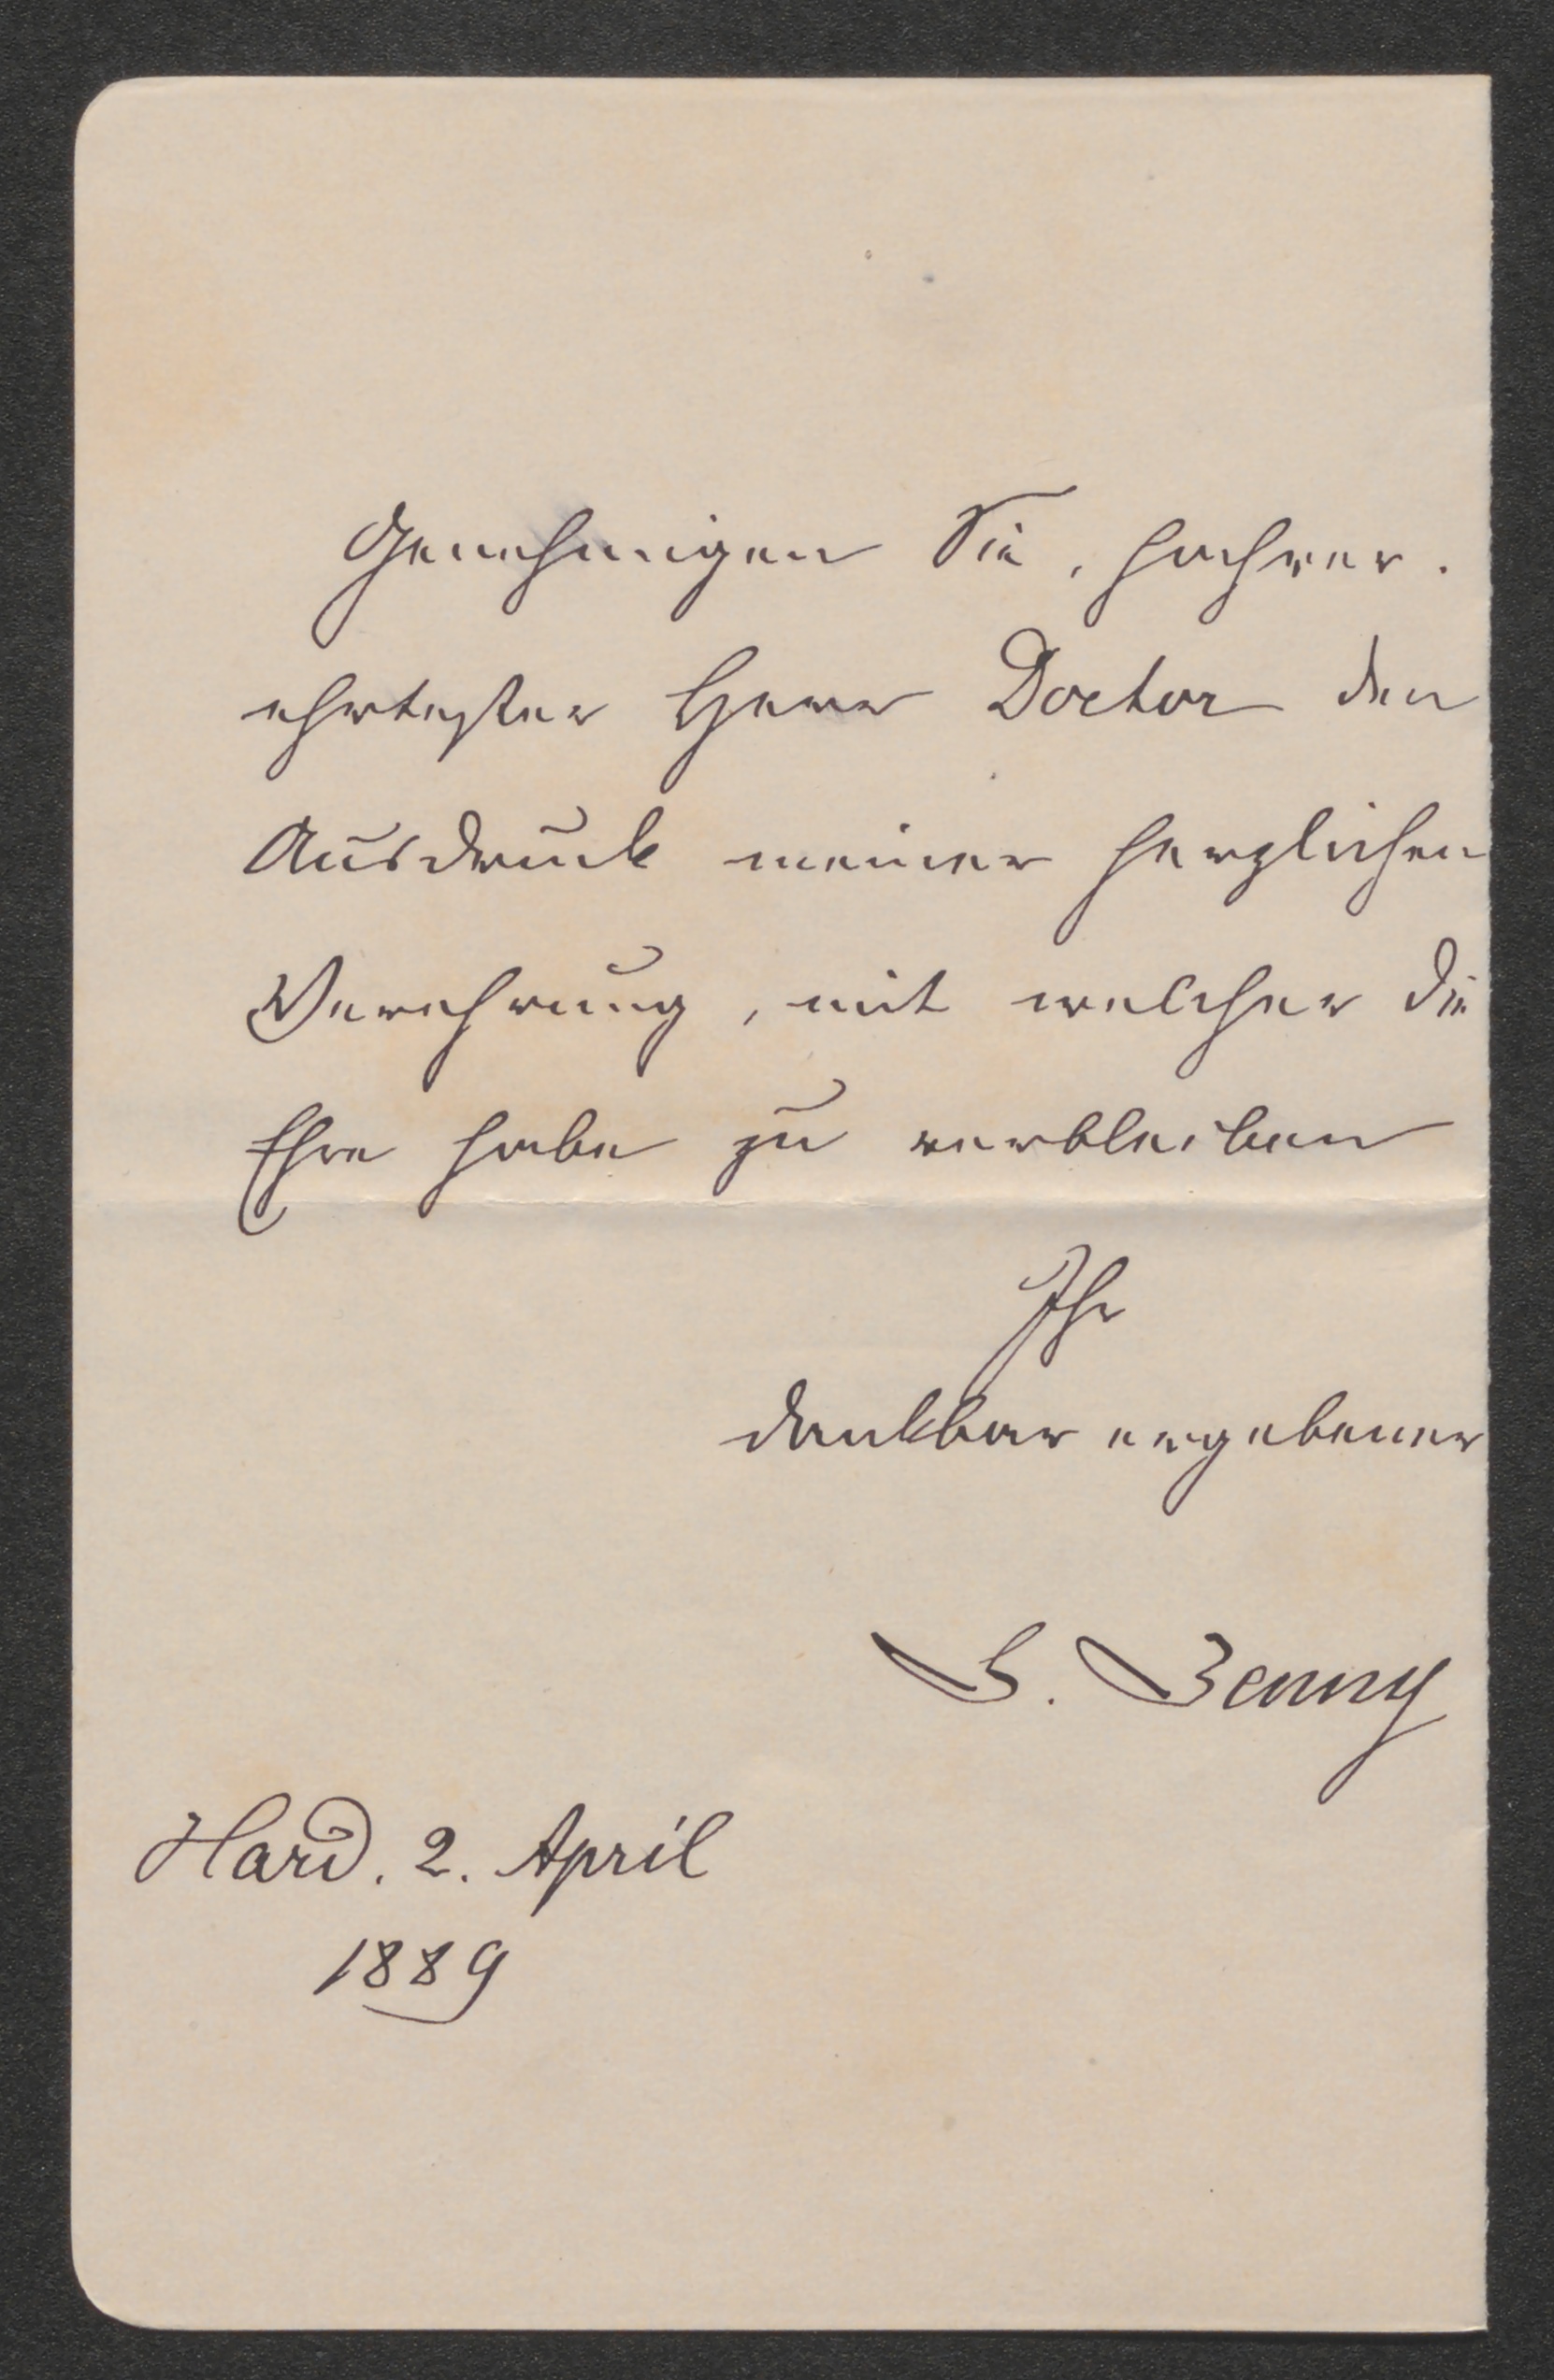 Genehmigen Sie, hochver.
ehrtester Herr Doctor den
Ausdruck meiner herzlichen
Verehrung, mit welcher die
Ehre habe zu verbleiben
Ihr
dankbar ergebener
S. Jenny
Hard. 2. April
1889